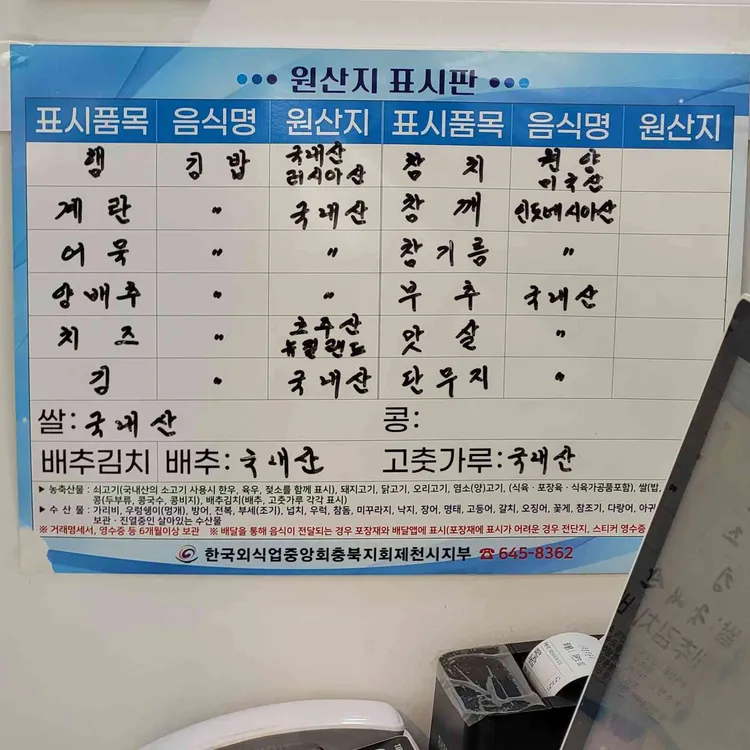 원산지 표시판
표시품목 음식명 원산지 표시품목 음식명 원산지
햄 김밥 국내산 러시아산 참치 원양 미국산
계란 〃 국내산 참깨 인도네시아산
어묵 〃 〃 참기름 〃
양배추 〃 〃 부추 국내산
치즈 〃 호주산 뉴질랜드 맛살 〃
김 〃 국내산 단무지 〃
쌀: 국내산 콩:
배추김치 배추: 국내산 고춧가루: 국내산
▶ 농축산물 : 쇠고기(국내산의 소고기 사용시 한우, 육우, 젖소를 함께 표시), 돼지고기, 닭고기, 오리고기, 염소(양)고기, (식육 · 포장육 · 식육가공품포함), 쌀(밥,
콩(두부류, 콩국수, 콩비지), 배추김치(배추, 고춧가루 각각 표시)
▶ 수 산 물 : 가리비, 우렁쉥이(멍게), 방어, 전복, 부세(조기), 넙치, 우럭, 참돔, 미꾸라지, 낙지, 장어, 명태, 고등어, 갈치, 오징어, 꽃게, 참조기, 다랑어, 아귀
보관 · 진열중인 살아있는 수산물
※ 거래명세서, 영수증 등 6개월이상 보관 ※ 배달을 통해 음식이 전달되는 경우 포장재와 배달앱에 표시(포장재에 표시가 어려운 경우 전단지, 스티커 영수증
한국외식업중앙회충북지회제천시지부 ☎645-8362